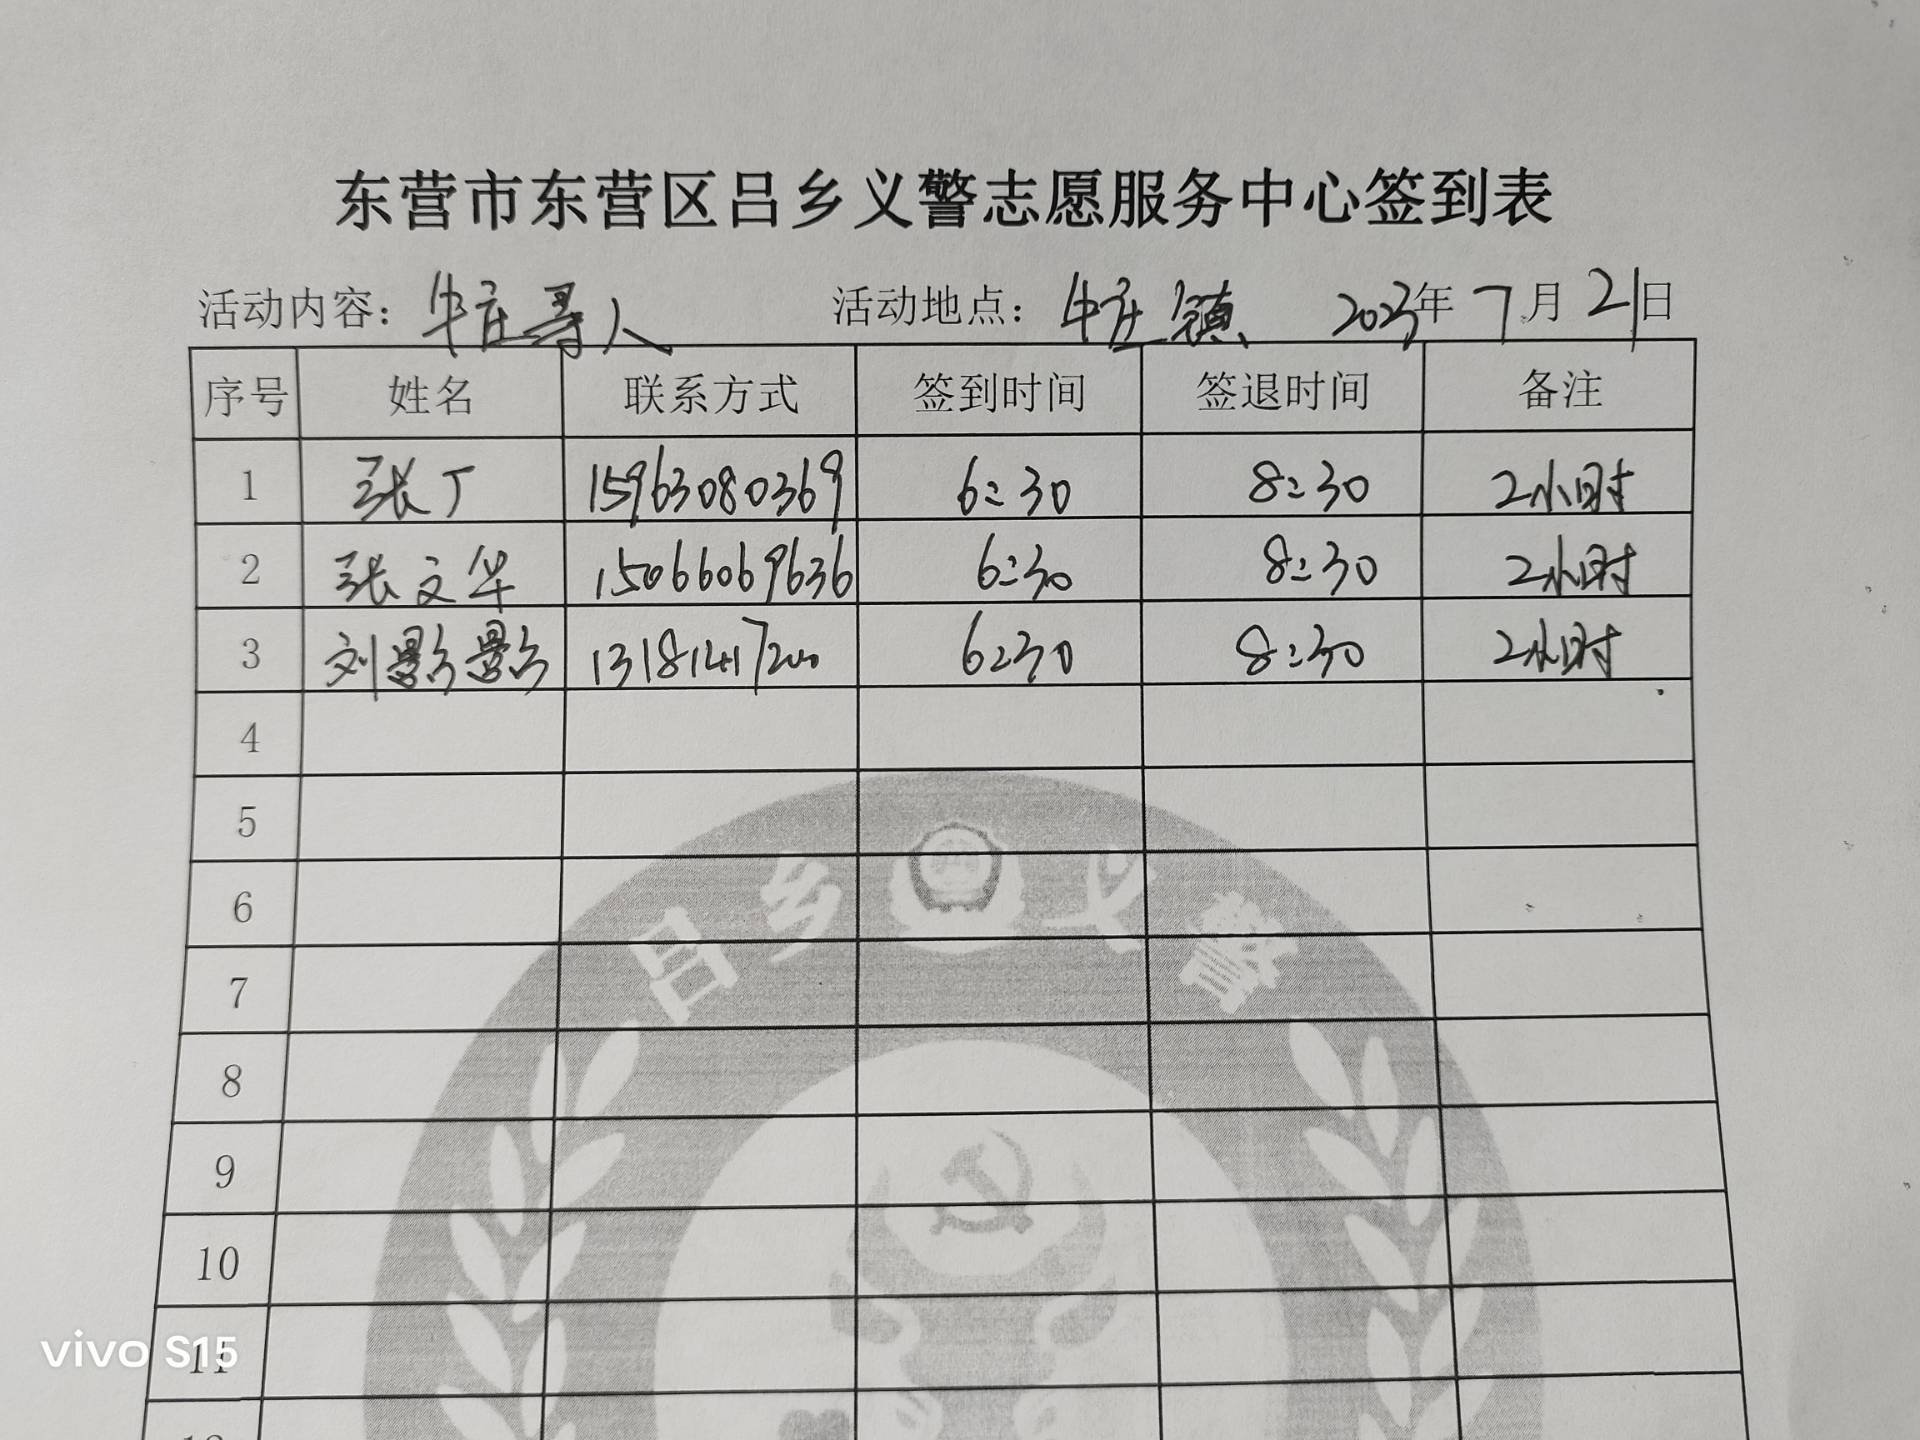 东营市东营区吕乡义警志愿服务中心签到表
活动内容：牛庄寻人 活动地点：牛庄镇 2023年7月21日
序号 姓名 联系方式 签到时间 签退时间 备注
1 张丁 15963080369 6:30 8:30 2小时
2 张文华 15066069636 6:30 8:30 2小时
3 刘影影 13181417200 6:30 8:30 2小时
4
5
6
7
8
9
10
11
12
吕乡义警
vivo S15